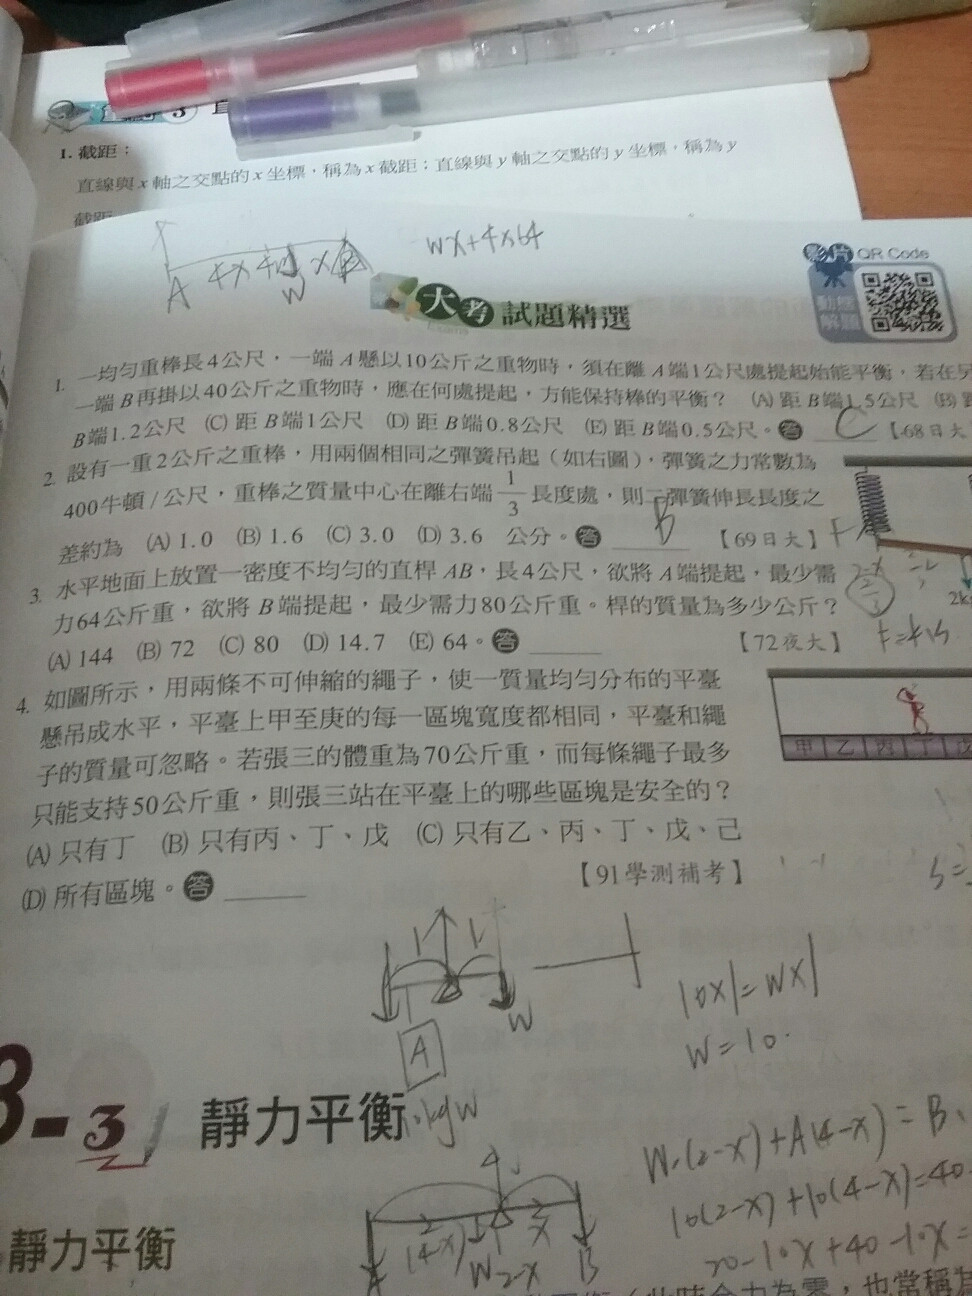 3
1. 截距：
直線與 x 軸之交點的 x 坐標，稱為 x 截距；直線與 y 軸之交點的 y 坐標，稱為 y
截距
A 4-x W x B
wx+4×64
影片 QR Code
大考試題精選
1. 一均勻重棒長4公尺，一端 A 懸以10公斤之重物時，須在離 A 端1公尺處提起始能平衡，若在另
一端 B 再掛以40公斤之重物時，應在何處提起，方能保持棒的平衡？ (A) 距 B 端1.5公尺 (B) 距
B 端1.2公尺 (C) 距 B 端1公尺 (D) 距 B 端0.8公尺 (E) 距 B 端0.5公尺。答 C 【68日大
2. 設有一重2公斤之重棒，用兩個相同之彈簧吊起（如右圖），彈簧之力常數為
400牛頓/公尺，重棒之質量中心在離右端 1/3 長度處，則二彈簧伸長長度之
差約為 (A) 1.0 (B) 1.6 (C) 3.0 (D) 3.6 公分。答 B 【69日大】
2k
3. 水平地面上放置一密度不均勻的直桿 AB，長4公尺，欲將 A 端提起，最少需
力64公斤重，欲將 B 端提起，最少需力80公斤重。桿的質量為多少公斤？
(A) 144 (B) 72 (C) 80 (D) 14.7 (E) 64。答 【72夜大】
4. 如圖所示，用兩條不可伸縮的繩子，使一質量均勻分布的平臺
懸吊成水平，平臺上甲至庚的每一區塊寬度都相同，平臺和繩
子的質量可忽略。若張三的體重為70公斤重，而每條繩子最多
只能支持50公斤重，則張三站在平臺上的哪些區塊是安全的？
甲 乙 丙 丁 戊
(A) 只有丁 (B) 只有丙、丁、戊 (C) 只有乙、丙、丁、戊、己
(D) 所有區塊。答 【91學測補考】
1 1
W
A
10×1=W×1
W=10
3-3 靜力平衡
kgW
W(2-x)+A(4-x)=B
10(2-x)+10(4-x)=40
20-10x+40-10x=
4
(4-x) x
A W 2-x B
靜力平衡